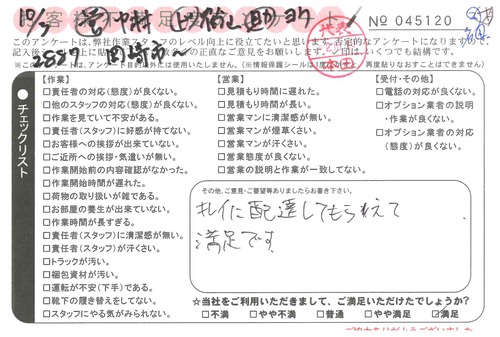 10/5 営 中村
No 045120
このアンケートは、弊社作業スタッフのレベル向上に役立てたいと思います。否定的なアンケートになりますので、
2827 岡崎市〜
【作業】
□責任者の対応(態度)が良くない。
□他のスタッフの対応(態度)が良くない。
□作業を見ていて不安がある。
□責任者(スタッフ)に好感が持てない。
□お客様への挨拶が出来ていない。
□ご近所への挨拶・気遣いが無い。
□作業開始前の内容確認がなかった。
□作業開始時間が遅れた。
□荷物の取り扱いが雑である。
□お部屋の養生が出来ていない。
□作業時間が長すぎる。
□責任者(スタッフ)に清潔感が無い。
□責任者(スタッフ)が汗くさい。
□トラックが汚い。
□梱包資材が汚い。
□運転が不安(下手)である。
□靴下の履き替えをしてない。
□スタッフにやる気がみられない。
【営業】
□見積もり時間に遅れた。
□見積もり時間が長い。
□営業マンに清潔感が無い。
□営業マンが煙草くさい。
□営業マンが汗くさい。
□営業態度が良くない。
□営業の説明と作業が一致してない。
【受付・その他】
□電話の対応が良くない。
□オプション業者の説明
・作業が良くない。
□オプション業者の対応
(態度)が良くない。
チェックリスト
その他、ご意見・ご要望等ありましたらお書き下さい。
キレイに配達してもらえて
満足です
☆当社をご利用いただきまして、ご満足いただけたでしょうか?
□不満 □やや不満 □普通 □やや満足 ☑満足
ご協力ありがとうございました